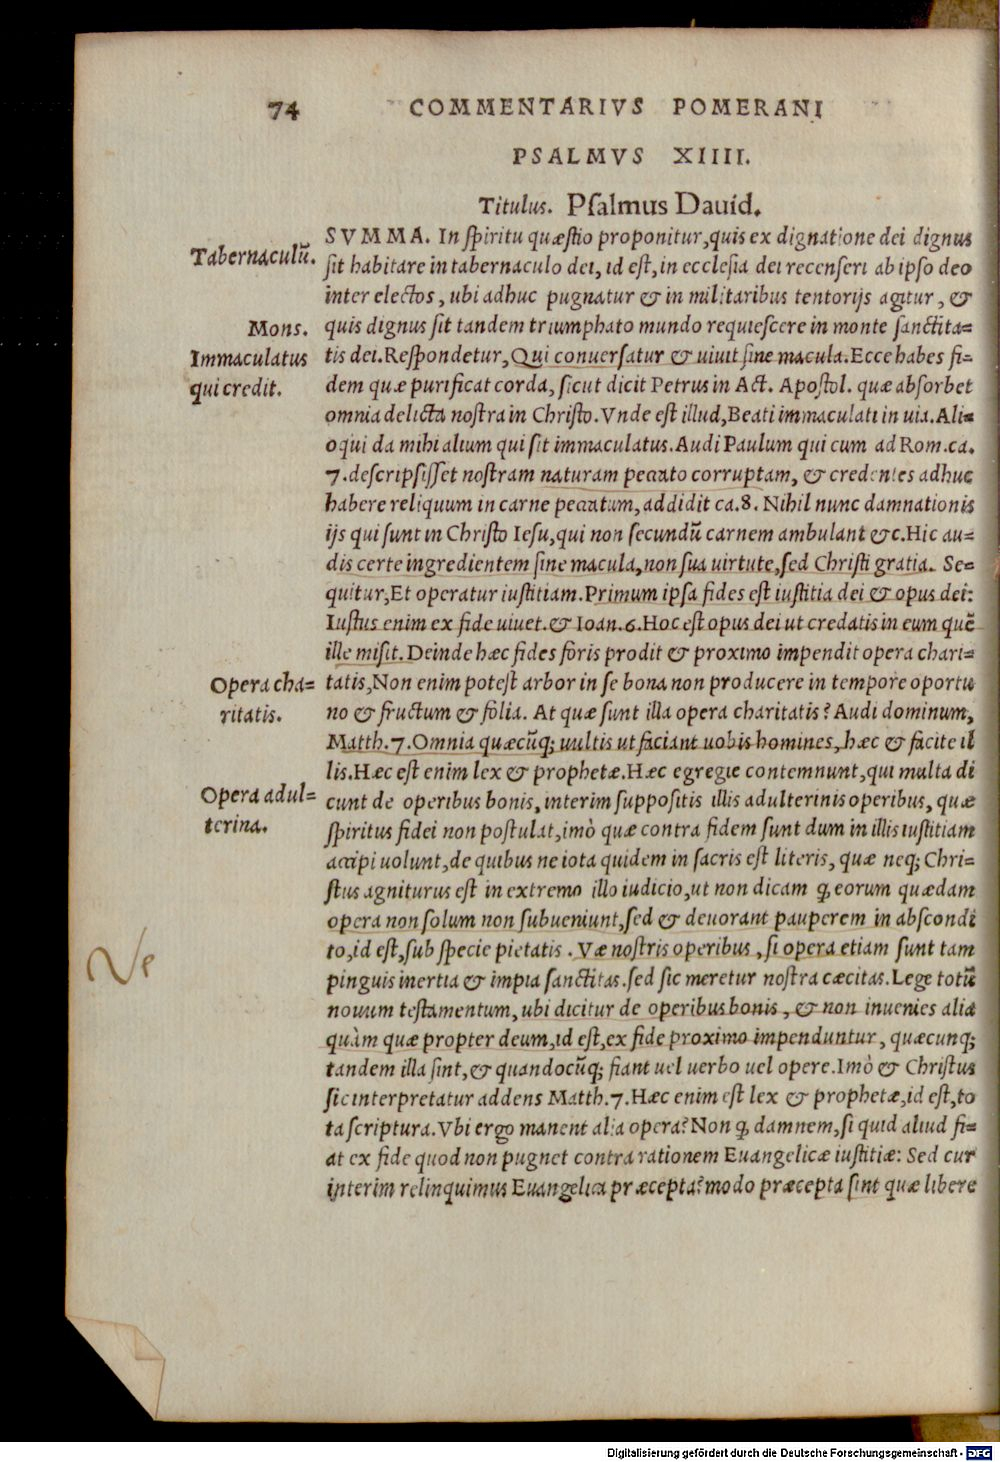 74 COMMENTARIVS POMERANI
PSALMVS XIIII.
Titulus. Psalmus Dauid.
Tabernaculũ.
Mons.
Immaculatus
qui credit.
Opera cha=
ritatis.
Opera adul=
terina.
Ve
SVMMA. In spiritu quæstio proponitur, quis ex dignatione dei dignus
sit habitare in tabernaculo dei, id est, in ecclesia dei recenseri ab ipso deo
inter electos, ubi adhuc pugnatur & in militaribus tentorijs agitur, &
quis dignus sit tandem triumphato mundo requiescere in monte sanctita=
tis dei. Respondetur, Qui conuersatur & uiuit sine macula. Ecce habes fi=
dem quæ purificat corda, sicut dicit Petrus in Act. Apostol. quæ absorbet
omnia delicta nostra in Christo. Vnde est illud, Beati immaculati in uia. Ali=
oqui da mihi alium qui sit immaculatus. Audi Paulum qui cum ad Rom. ca.
7. descripsisset nostram naturam peccato corruptam, & credentes adhuc
habere reliquum in carne peccatum, addidit ca. 8. Nihil nunc damnationis
ijs qui sunt in Christo Iesu, qui non secundũ carnem ambulant &c. Hic au=
dis certe ingredientem sine macula, non sua uirtute, sed Christi gratia. Se=
quitur, Et operatur iustitiam. Primum ipsa fides est iustitia dei & opus dei:
Iustus enim ex fide uiuet. & Ioan. 6. Hoc est opus dei ut credatis in eum quẽ
ille misit. Deinde hæc fides foris prodit & proximo impendit opera chari=
tatis, Non enim potest arbor in se bona non producere in tempore oportu
no & fructum & folia. At quæ sunt illa opera charitatis? Audi dominum,
Matth. 7. Omnia quæcũq; uultis ut faciant uobis homines, hæc & facite il
lis. Hæc est enim lex & prophetæ. Hæc egregie contemnunt, qui multa di
cunt de operibus bonis, interim suppositis illis adulterinis operibus, quæ
spiritus fidei non postulat, imò quæ contra fidem sunt dum in illis iustitiam
accipi uolunt, de quibus ne iota quidem in sacris est literis, quæ neq; Chri=
stus agniturus est in extremo illo iudicio, ut non dicam ꝙ eorum quædam
opera non solum non subueniunt, sed & deuorant pauperem in abscondi
to, id est, sub specie pietatis. Væ nostris operibus, si opera etiam sunt tam
pinguis inertia & impia sanctitas. sed sic meretur nostra cæcitas. Lege totũ
nouum testamentum, ubi dicitur de operibus bonis, & non inuenies alia
quàm quæ propter deum, id est, ex fide proximo impenduntur, quæcunq;
tandem illa sint, & quandocũq; fiant uel uerbo uel opere. Imò & Christus
sic interpretatur addens Matth. 7. Hæc enim est lex & prophetæ, id est, to
ta scriptura. Vbi ergo manent alia opera? Non ꝙ damnem, si quid aliud fi=
at ex fide quod non pugnet contra rationem Euangelicæ iustitiæ: Sed cur
interim relinquimus Euangelica præcepta? modo præcepta sint quæ libere
Digitalisierung gefördert durch die Deutsche Forschungsgemeinschaft - DFG